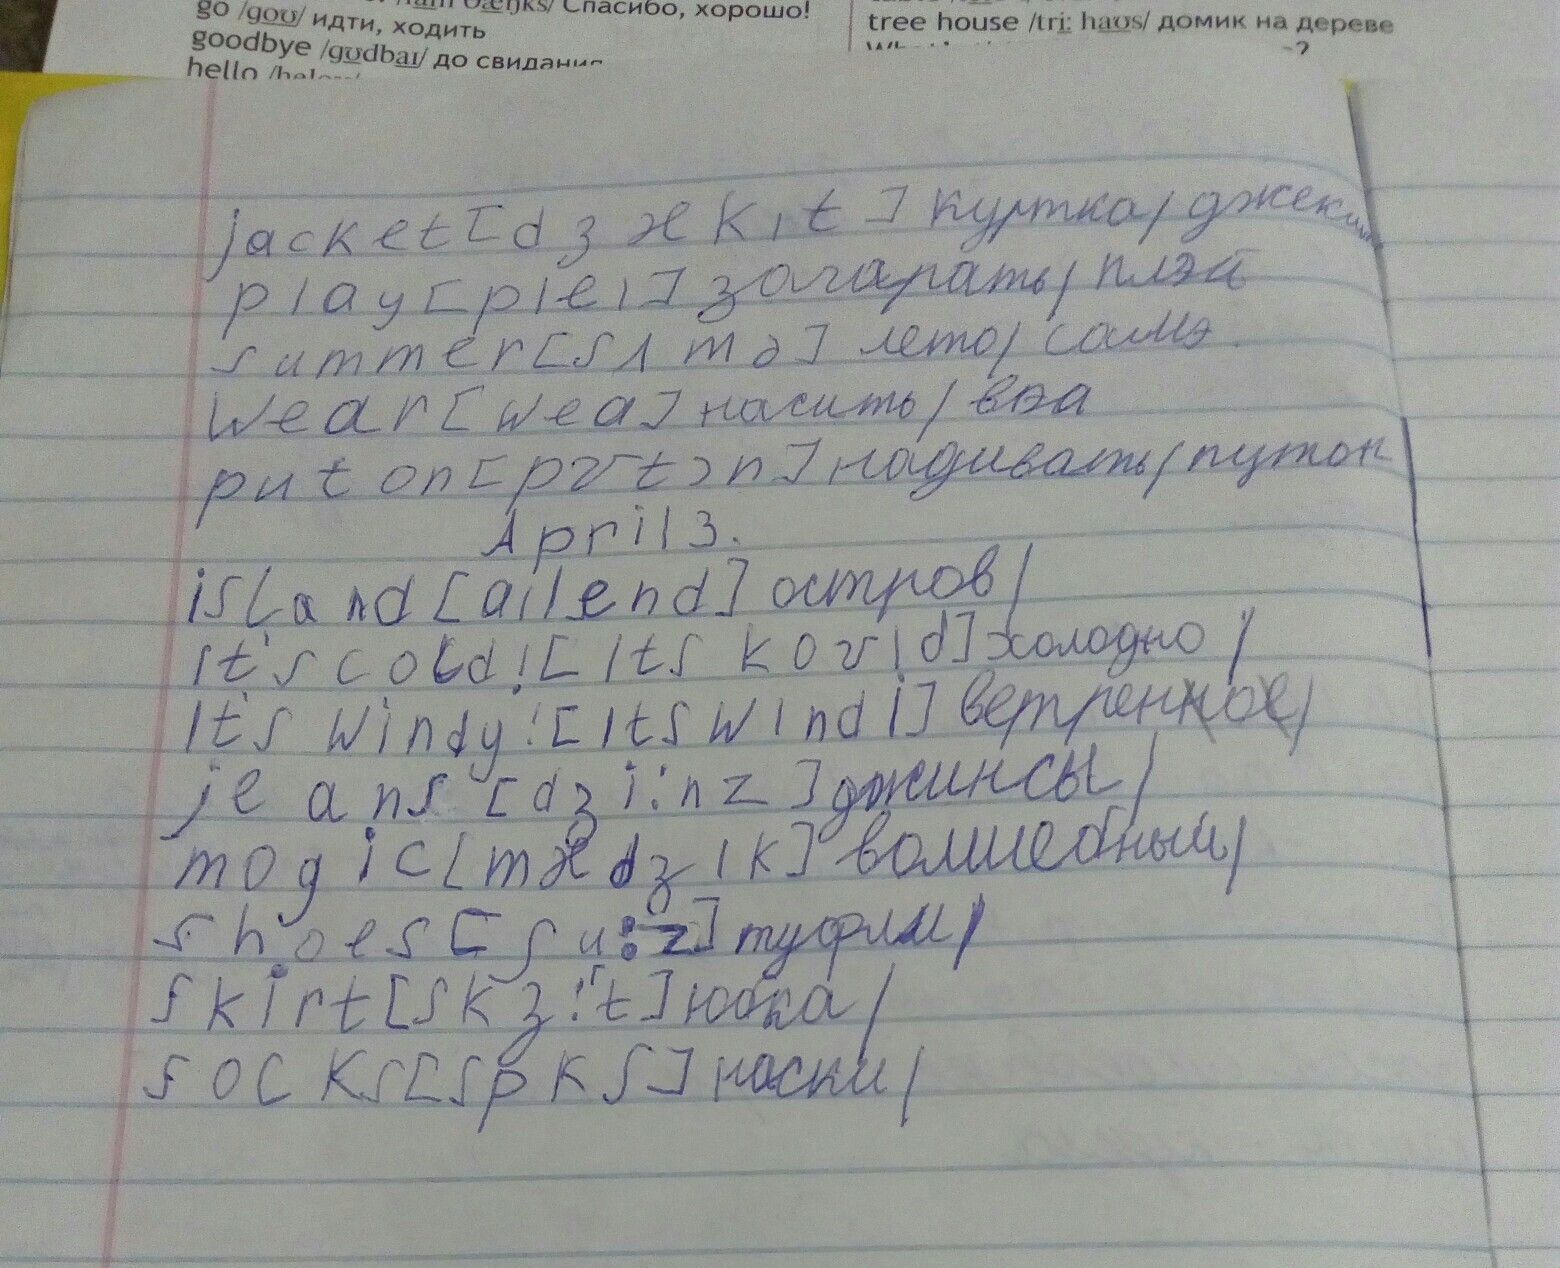 go /gəʊ/ идти, ходить
goodbye /gʊdbaɪ/ до свидания
hello
Спасибо, хорошо!
tree house /tri: haʊs/ домик на дереве
jacket [dʒækıt] куртка/ джекит
play [pleı] загарать/ плэй
summer [sʌmə] лето/ самэ
wear [wea] насить/ вэа
put on [pʊtɔn] надивать/ путон
April 3.
island [aılend] остров/
It's cold! [Its koʊld] холодно/
It's windy! [Its wındi] ветренное/
jeans [dʒi:nz] джинсы/
mogic [mædʒık] волшебный/
shoes [ʃu:z] туфли/
skirt [skз:t] юбка/
socks [spks] наски/